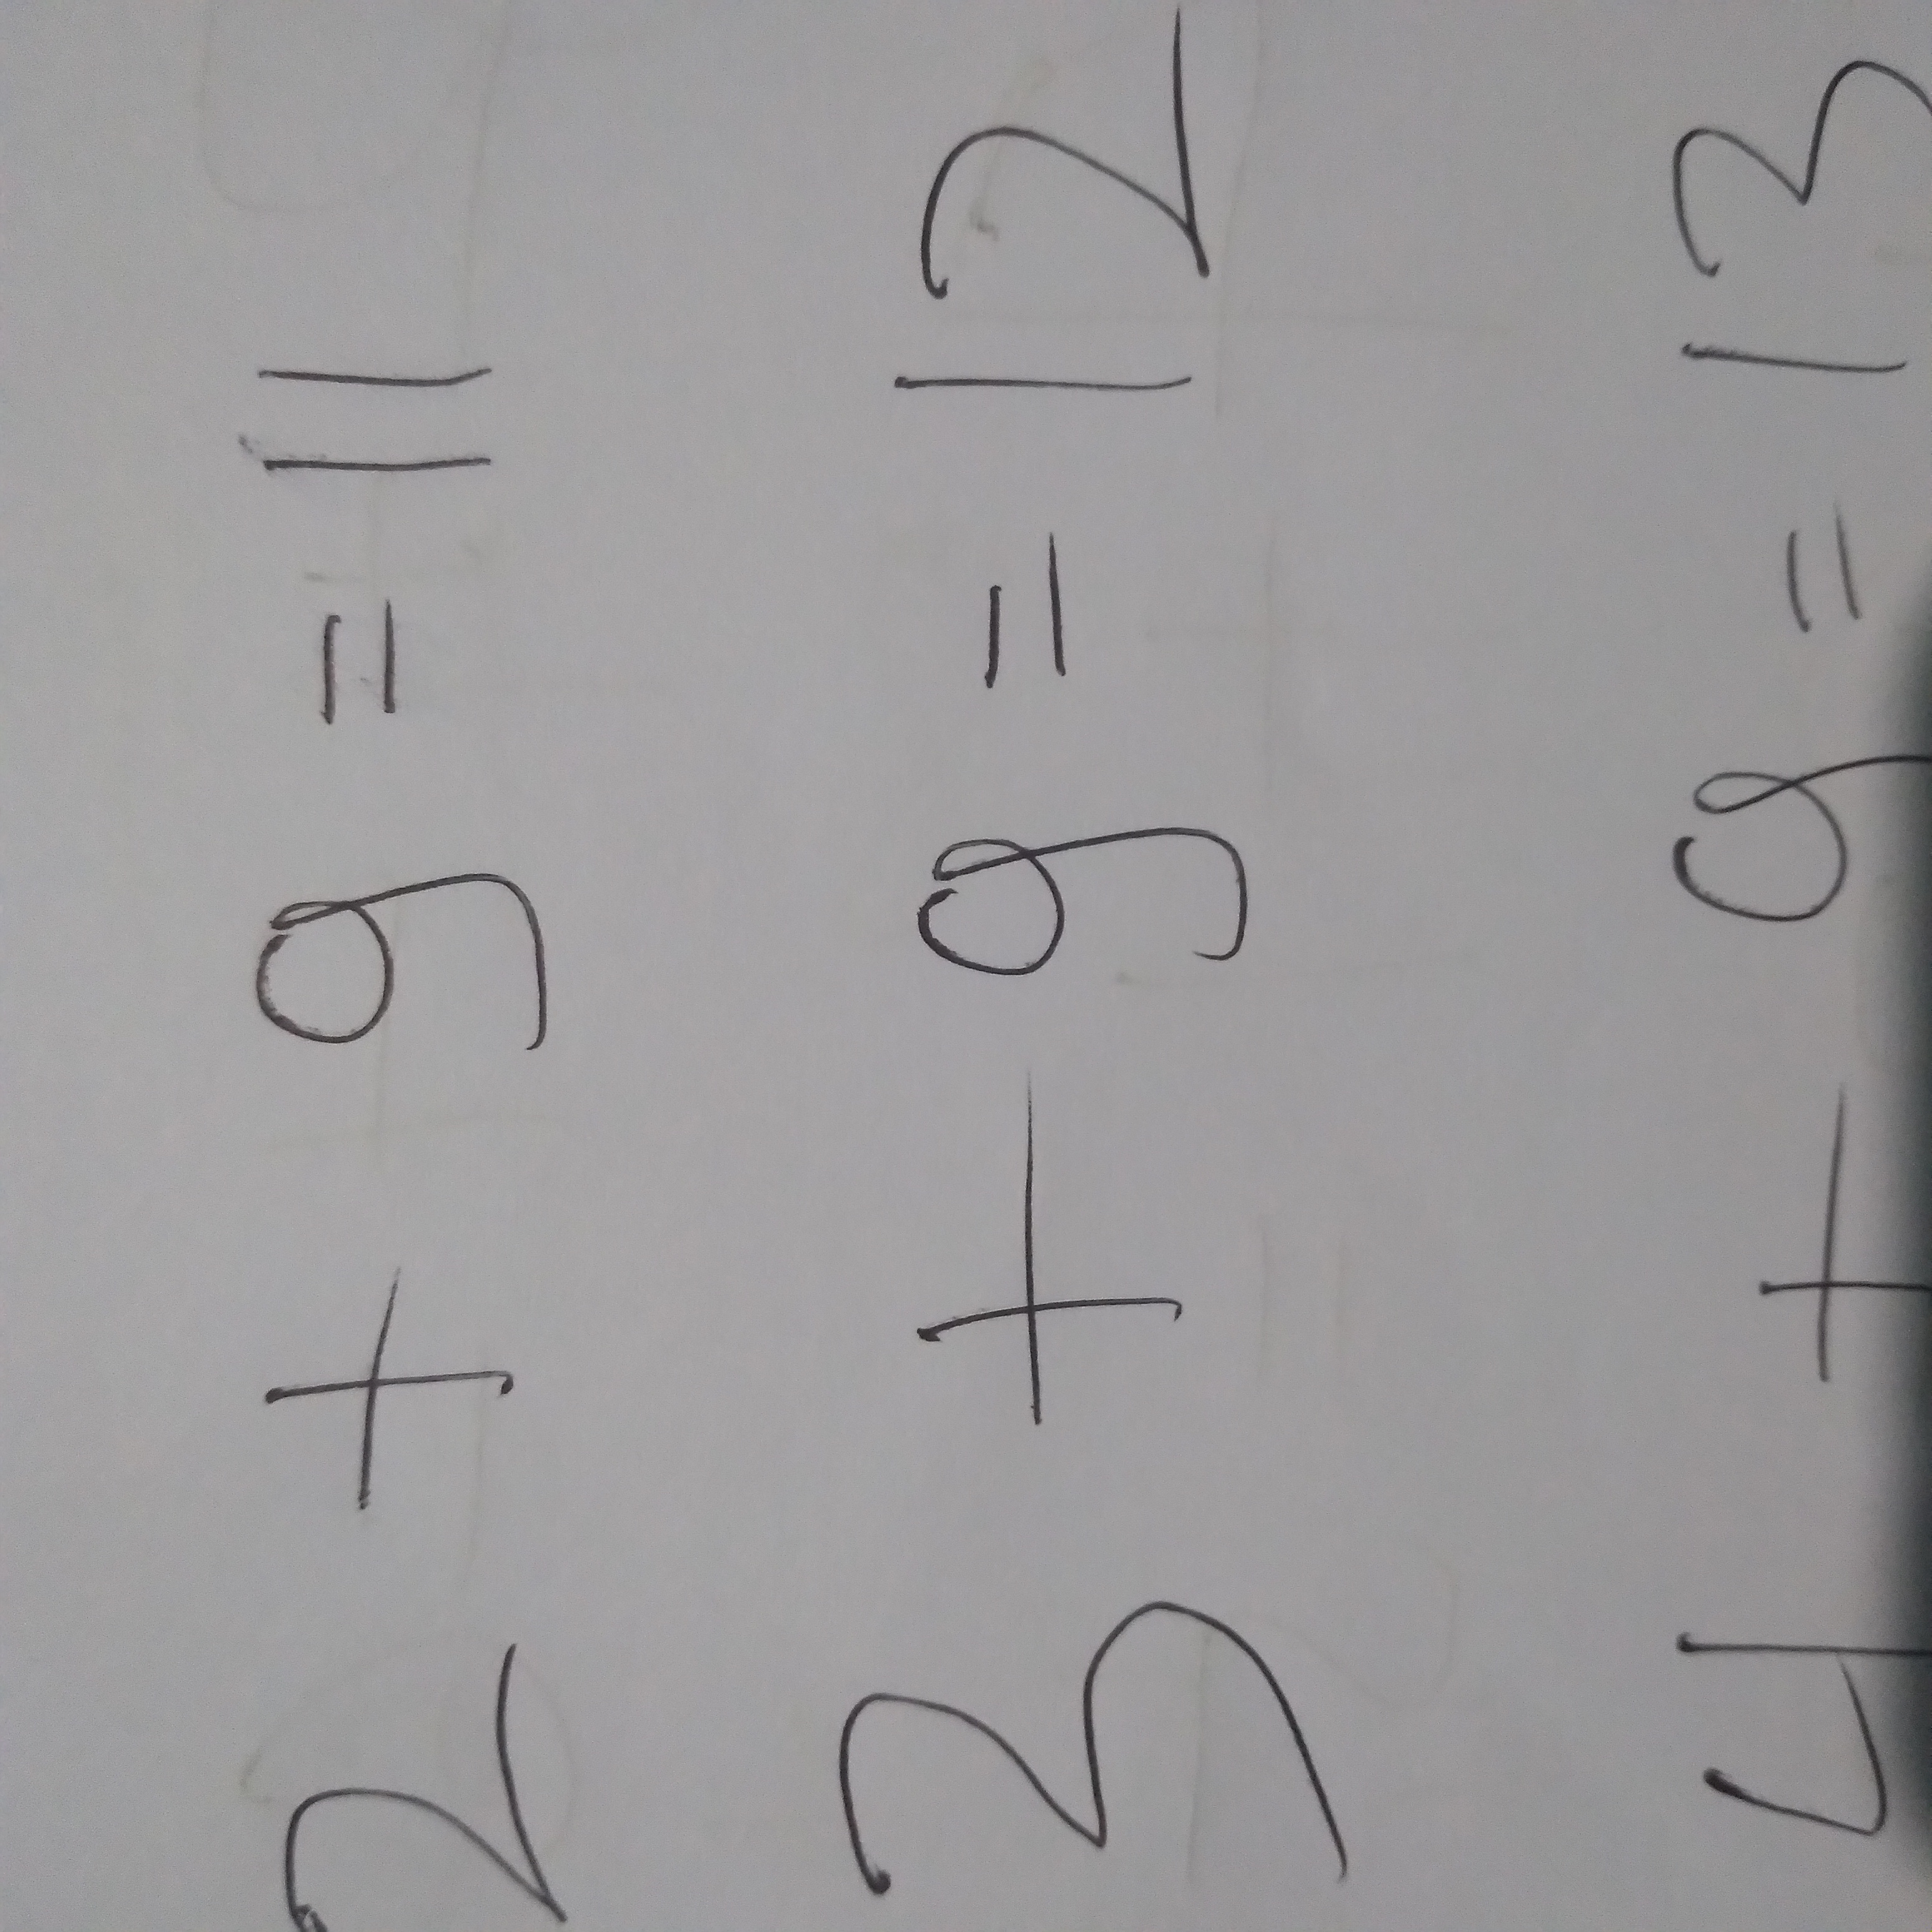 2 + 9 = 11
3 + 9 = 12
4 + 9 = 13